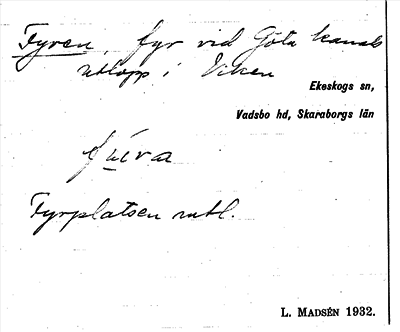 Fyren, fyr vid Göta kanals
utlopp i Viken
Ekeskogs sn,
Vadsbo hd, Skaraborgs län
Fyrplatsen
L. MADSÉN 1932.